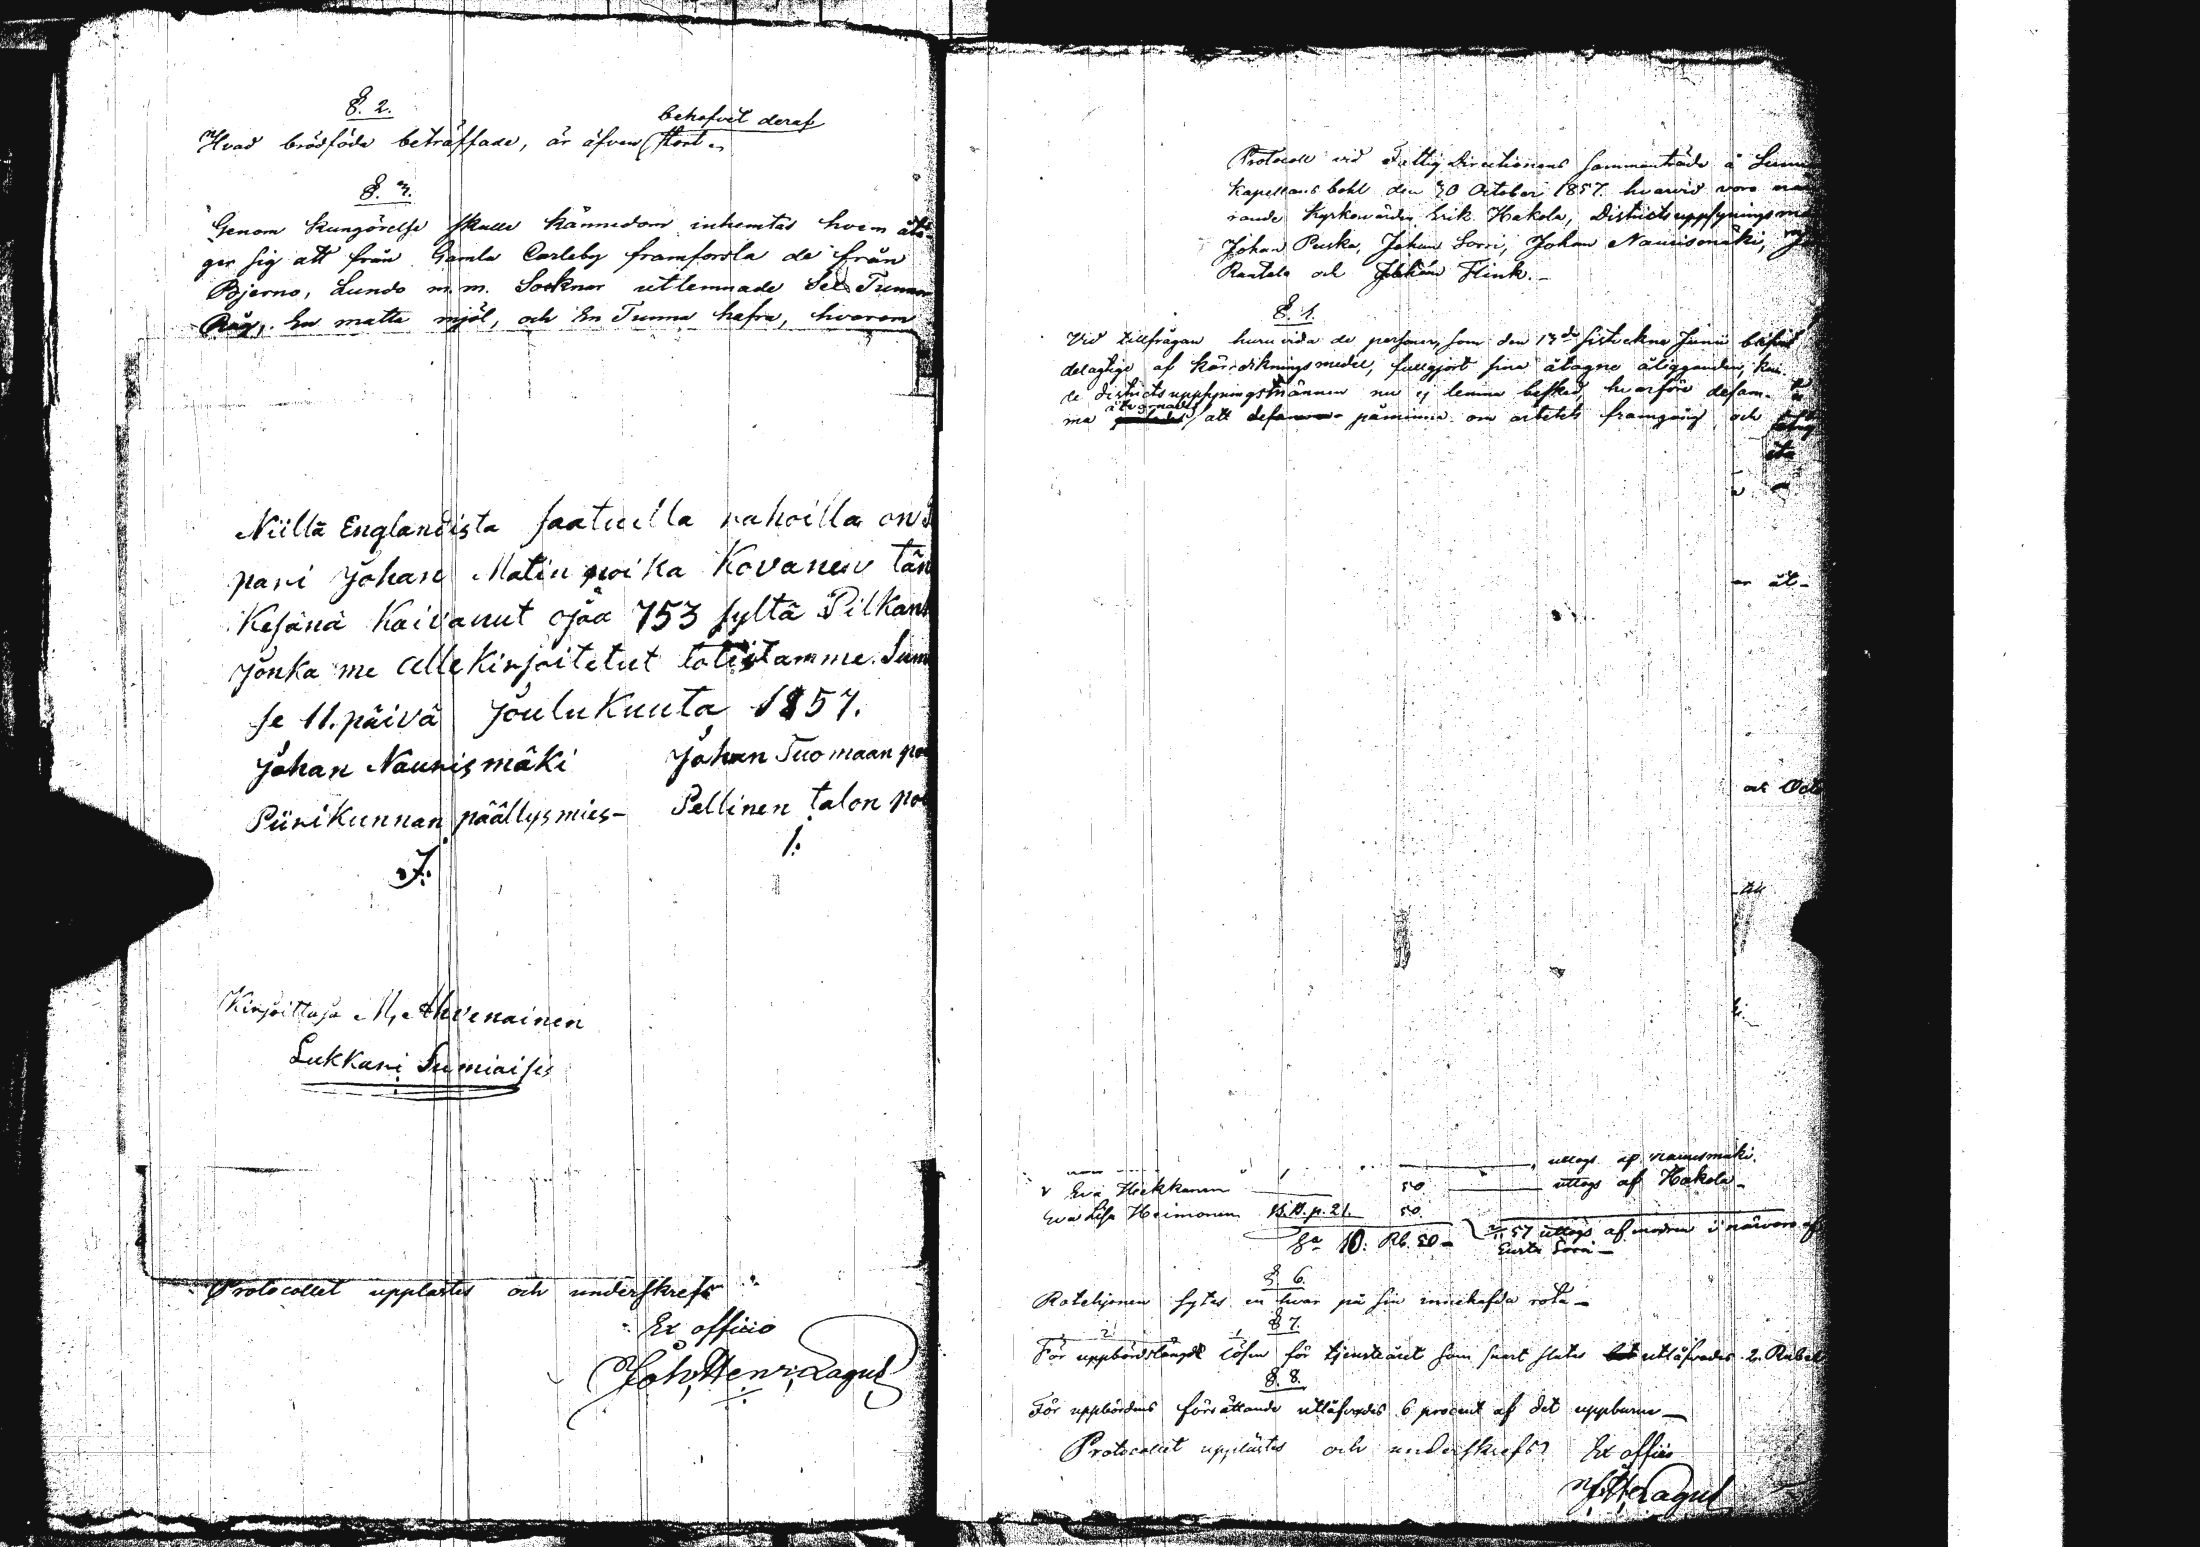 §. 2.
behofvet deraf
Hvad brödföda beträffade, är äfven stort.
§. 3.
Genom kungörelse skulle kännedom inhemtas hvem åta-
ger sig att från Gamla Carleby framforsla de från
Bjerno, Lundo m. m. Socknar utlemnade Sex Tunnor
Råg, En matta mjöl, och En Tunna hafra, hvarom
Niillä Englandista saatuilla rahoilla on
pari Johan Matin poika Kovanen tän
Kesänä Kaivanut ojaa 753 syltä Pilkan
Jonka me allekirjoitetut totistamme. Sum
se 11. päivä Joulukuuta 1857.
Johan Naurismäki Johan Tuomaan po
Piirikunnan päällysmies- Pellinen talon po
Kirjoittaja M. Ahvenainen
Lukkari Sumiaisis
Protocollet upplästes och underskrefs
Ex officio
Joh. Henr. Lagus
Protocoll vid Fattig Directionens sammanträde å Sumi
Kapellans bohl den 30 October 1857. hvarvid voro när
varande Kyrkovärden Erik Hakola, Districtsuppsyningsmä
Johan Puska, Johan Sorri, Johan Naurismäki,
Rantala och Johan Flink.-
§. 1.
Vid tillfrågan huruvida de personer, som den 13de sistvekne Junii blifvit
delagtige af kärrdikningsmedel, fullgjort sina åtagne åligganden, kun-
de districtsuppsyningsmännen nu ej lemna besked, hvarföre desam-
ma att påminna om arbetets framgång och
er åt-
och Octo
uttogs af Naurismäki.
v Eva Hiekkanen 50 uttogs af Hakola-
Eva Lisa Heimonen B.B. p. 21. 50.
Sa 10: Rb. 50- 57 uttogs af modren i närvaro af
Sorri-
§ 6.
Rotehjonen sytes en hvar på sin innehafda rota-
§ 7.
2 1
För uppbördslängd lösen för tjensteåret som snart slutes utlåfvades 2 Rubel
§. 8.
För uppbördens försättande utlåfvades 6 procent af det uppburna-
Protocollet upplästes och underskrefs Ex officio
J. H. Lagus